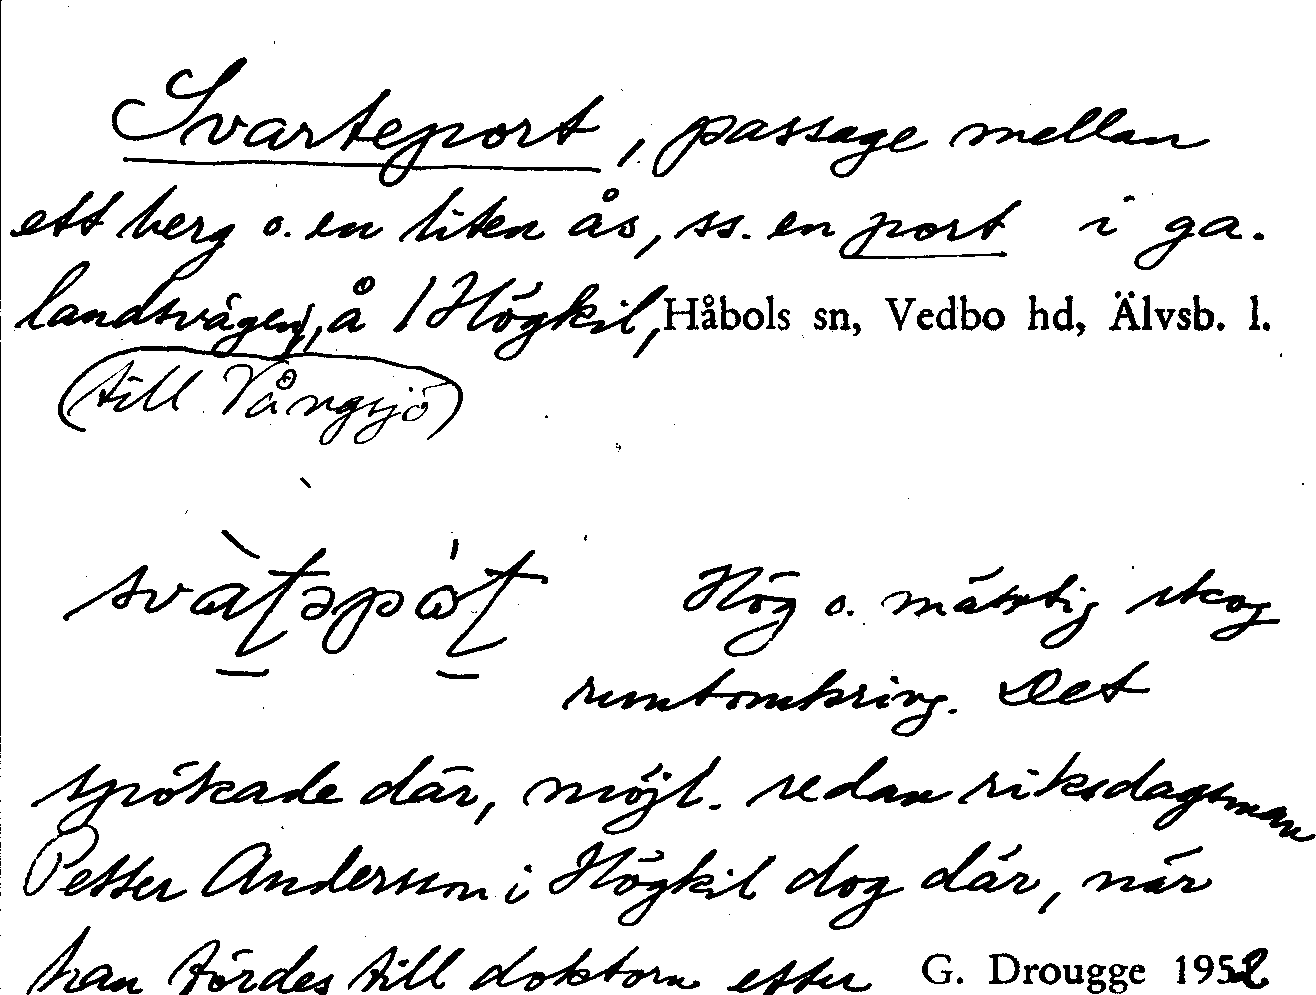 Svarteport, passage mellan
ett berg o. en liten ås, ss. en port i ga.
landsvägen, å 1 Högkil, Håbols sn, Vedbo hd, Älvsb. l.
(till Vångsjö)
Hög o. mäktig skog
runtomkring. Det
spökade där, möjl. redan riksdagsman
Petter Andersson i Högkil dog där, när
han fördes till doktorn efter G. Drougge 1952